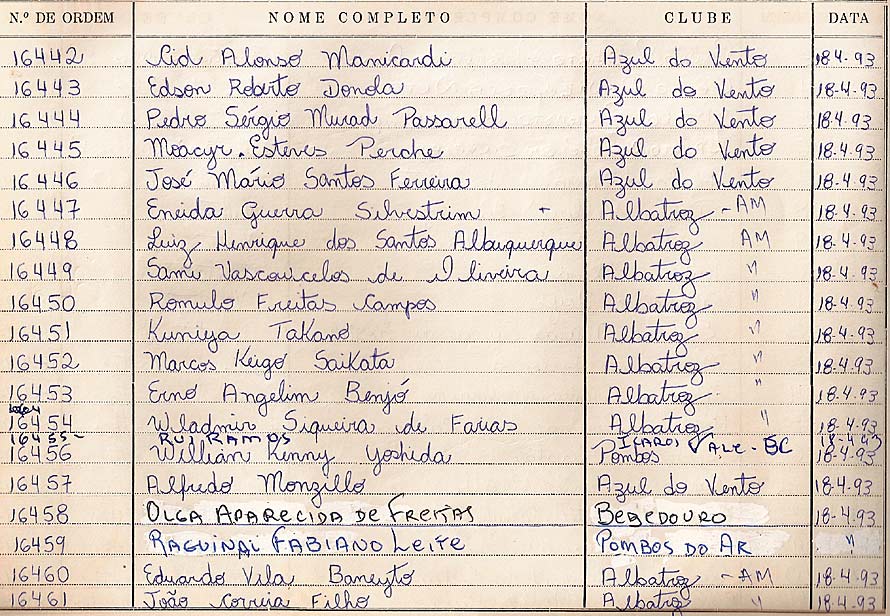 N.º DE ORDEM NOME COMPLETO CLUBE DATA
16442 Cid Alonso Manicardi Azul do Vento 18.4.93
16443 Edson Roberto Donola Azul do Vento 18-4.93
16444 Pedro Sérgio Murad Passarell Azul do Vento 18.4.93
16445 Moacyr. Esteves Perche Azul do Vento 18-4.93
16446 José Mário Santos Ferreira Azul do Vento 18-4.93
16447 Eneida Guerra Silvestrim Albatroz - AM 18-4.93
16448 Luiz Henrique dos Santos Albuquerque Albatroz AM 18-4.93
16449 Sami Vasconcelos de Oliveira Albatroz " 18-4.93
16450 Romulo Freitas Campos Albatroz " 18-4.93
16451 Kuniya Takano Albatroz " 18-4.93
16452 Marcos Keigo Saikata Albatroz " 18-4.93
16453 Erno Angelim Benjó Albatroz " 18-4.93
16454 Wladmir Siqueira de Farias Albatroz " 18-4.93
16455- RUI RAMOS ICAROS VALE - SC 18-4-93
16456 Willian Kenny Yoshida Pombos 18-4.93
16457 Alfredo Monzillo Azul do Vento 18-4.93
16458 OLGA APARECIDA DE FREITAS BEBEDOURO 18-4.93
16459 RAGUINAL FABIANO LEITE POMBOS DO AR "
16460 Eduardo Vila Baneyto Albatroz - AM 18-4-93
16461 João Correia Filho Albatroz " 18-4-93